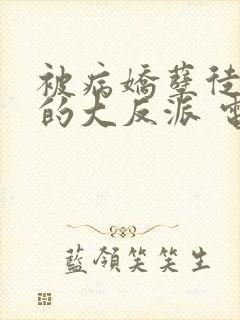 被病嬌孽徒
的大反派
藍領笑笑生